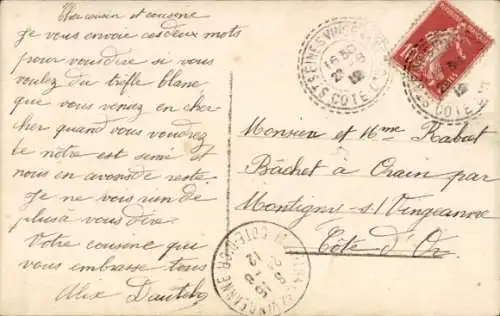 Cher cousin et cousine
Je vous envoie ces deux mots
pour vous dire si vous
voulez du trèfle blanc
que vous venez en cher-
cher quand vous voudrez
le nôtre est semé et
nous en avons de reste
Je ne vous rien de
plus a vous dire.
Votre cousine qui
vous embrasse tous
Alix
Monsieur et Mme Rabat
Bâchet a Orain par
Montigny s/ Vingeanne
Côte d'Or
16 50
CÔTE D'OR